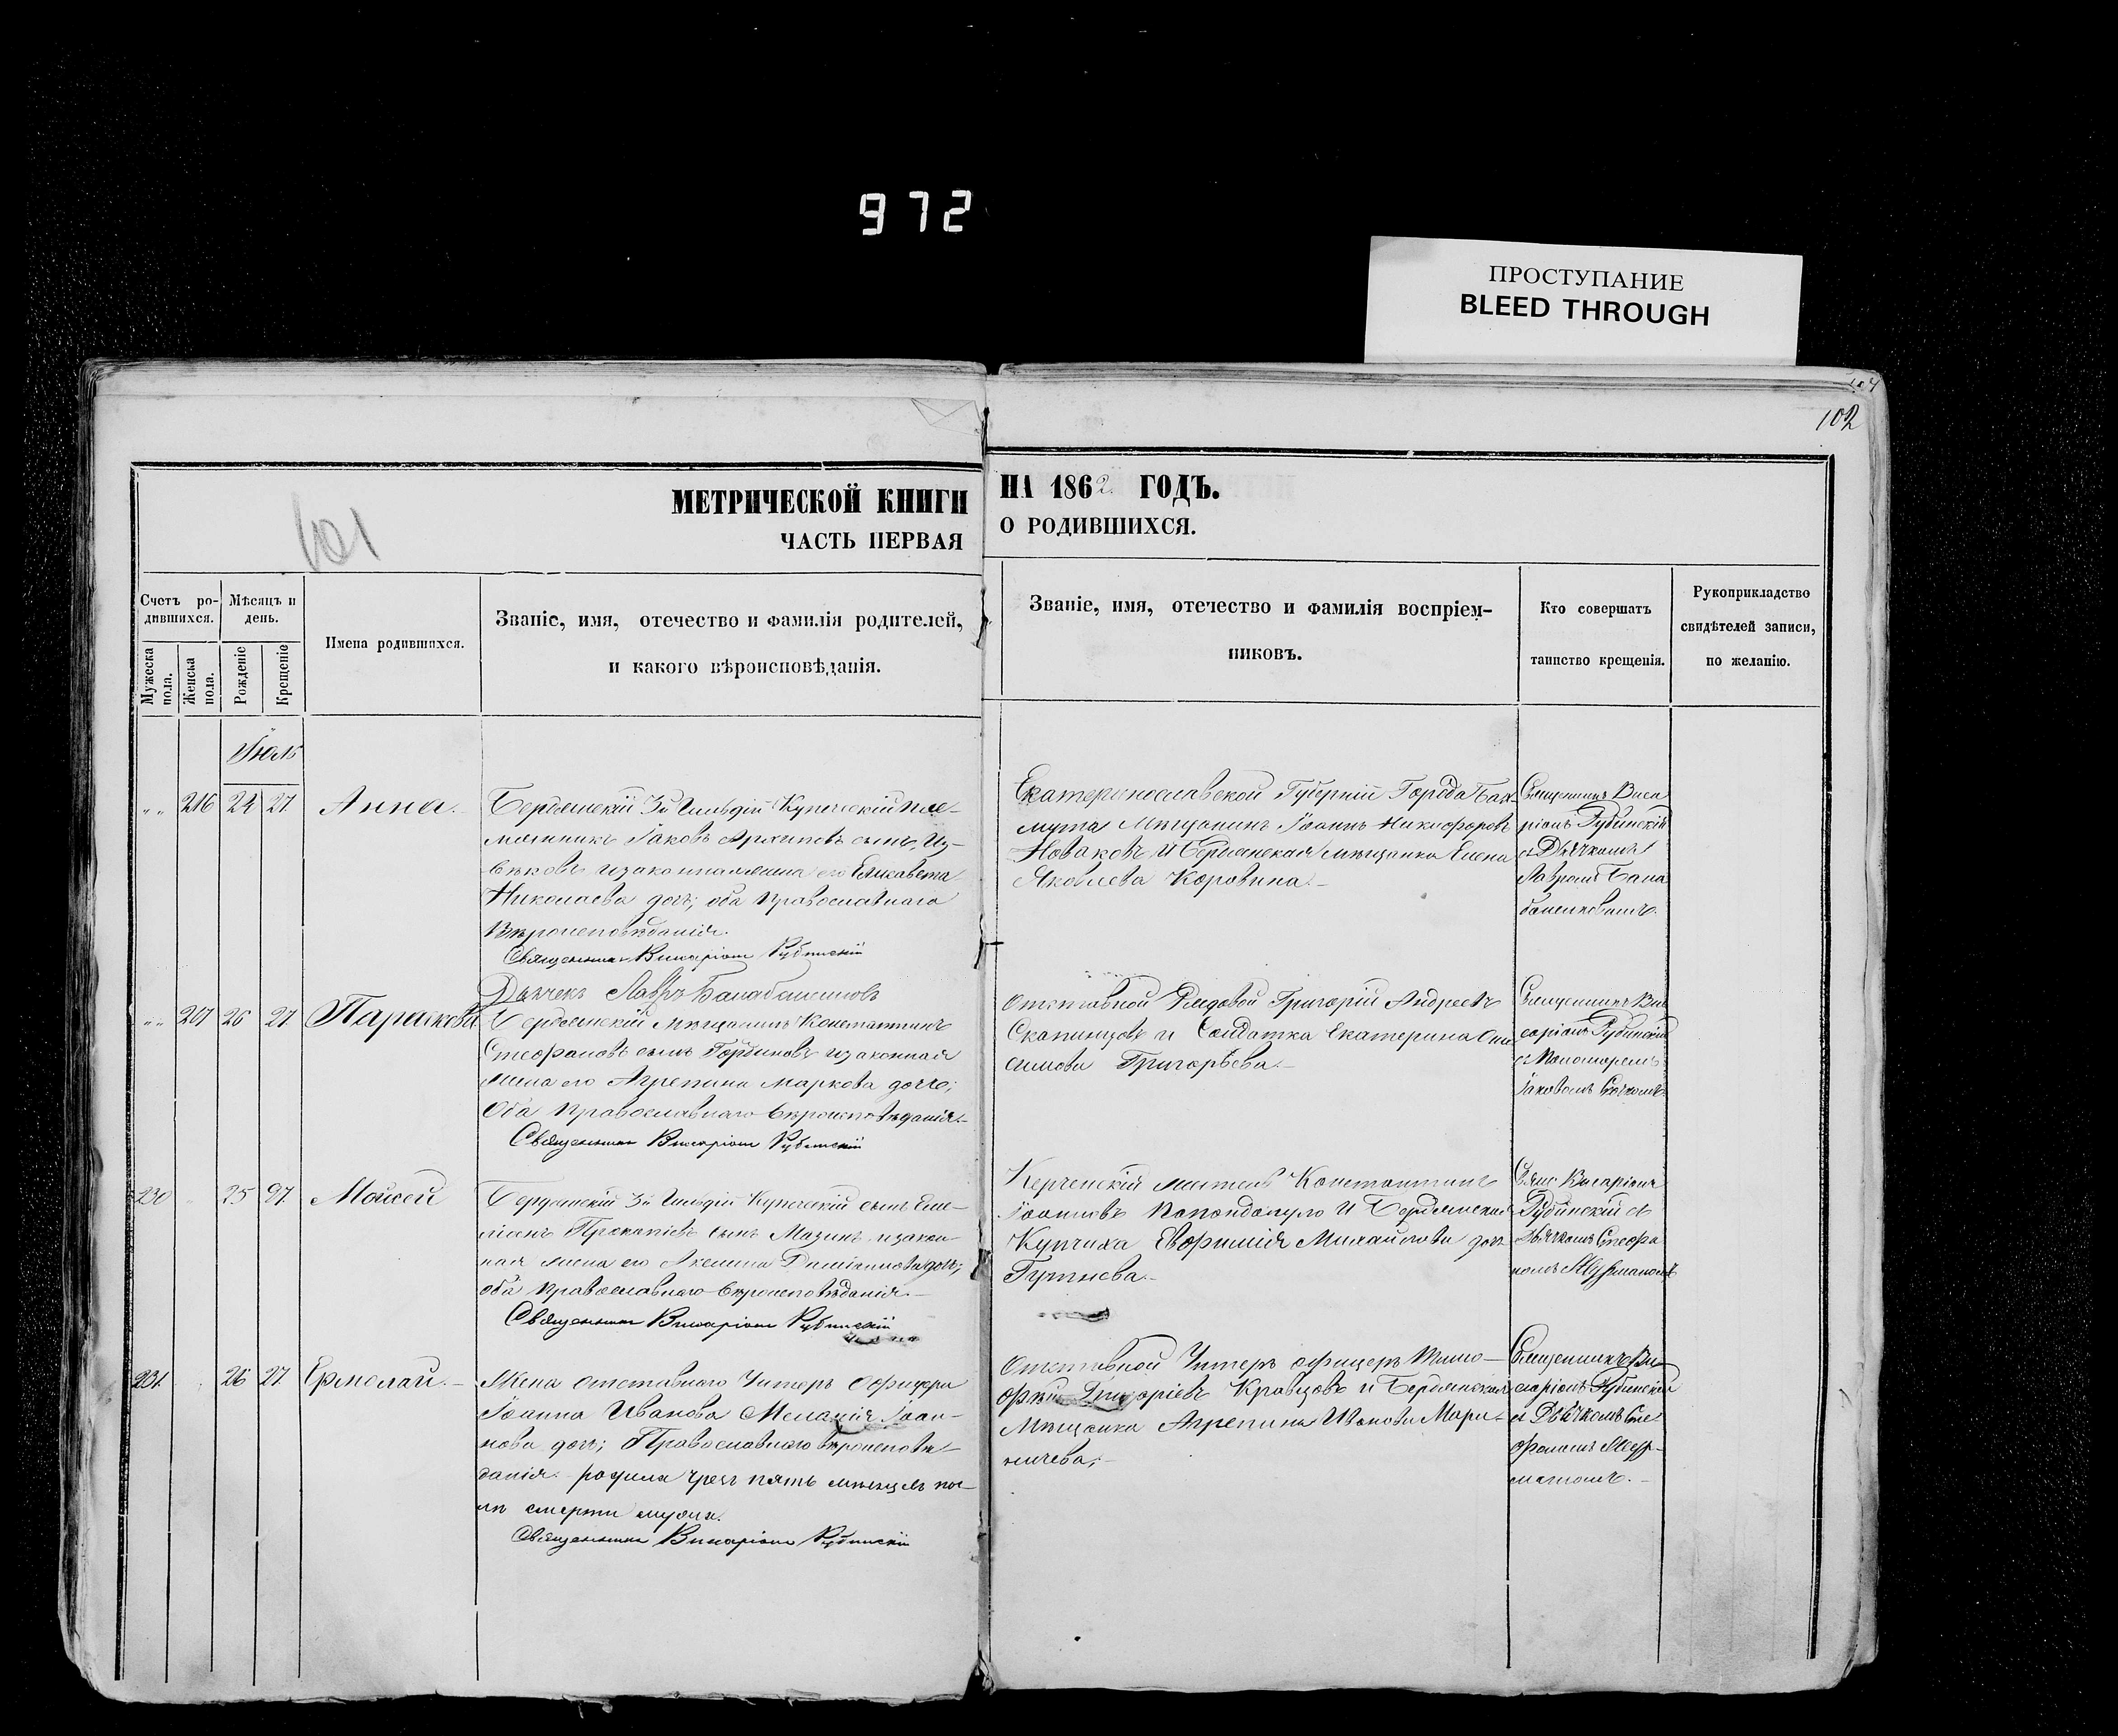 972
ПРОСТУПАНИЕ
BLEED THROUGH
102
101
МЕТРИЧЕСКОЙ КНИГИ НА 1862 ГОДЪ.
ЧАСТЬ ПЕРВАЯ О РОДИВШИХСЯ.
Счетъ ро-
дившихся.
Мѣсяцъ и
день.
Имена родившихся.
Званіе, имя, отечество и фамилія родителей,
и какого вѣроисповѣданія.
Званіе, имя, отечество и фамилія воспріем-
никовъ.
Кто совершатъ
таинство крещенія.
Рукоприкладство
свидѣтелей записи,
по желанію.
Мужеска
пола.
Женска
пола.
Рожденіе
Крещеніе
Іюль
" " 216 24 27 Анна.
Бердянскій 3й Гильдіи Купеческій пле-
мянникъ Іаковъ Архиповъ сынъ, Из-
вѣковъ и законная жена его Елисавета
Николаева дочь; оба Православнаго
Вѣроисповѣданія.
Священникъ Висаріонъ Рубинскій
Дьячекъ Лавръ
Екатеринославской Губерніи Города Бах-
мута Мѣщанинъ Іоаннъ Никифоровъ
Новаковъ и Бердянская мѣщанка Елена
Яковлева Коровина.
Священникъ Виса
ріонъ Рубинскій
съ Дьячкомъ
Лавромъ
" " 217 26 27 Параскева
Бердянскій Мѣщанинъ Константинъ
Стефановъ сынъ и законная
жена его Агрепина Маркова дочь;
Оба Православнаго Вѣроисповѣданія.
Священникъ Висаріонъ Рубинскій
Отставной Рядовой Григорій Андреевъ
и Солдатка Екатерина Они
симова Григорьева.
Священникъ Вис
саріонъ Рубинскій
съ Пономаремъ
Іаковомъ
230 25 27 Моисей
Бердянскій 3й Гильдіи Купеческій сынъ Еме-
ліанъ Прокопіевъ сынъ Мазинъ и закон-
ная жена его Аксенія дочь;
оба Православнаго Вѣроисповѣданія.
Священникъ Висаріонъ Рубинскій
Керченскій житель Константинъ
Іоанновъ Попондопуло и Бердянская
Купчиха Евфимія Михайлова дочь
Свящ Висаріонъ
Рубинскій съ
Дьячкомъ Стефа
номъ
231 26 27 Ермолай.
Жена отставнаго Унтеръ Офицера
Іоанна Иванова Меланія Іоан-
нова дочь; Православнаго вѣроисповѣ-
данія родила чрезъ пять мѣсяцевъ пос-
лѣ смерти мужа.
Священникъ Висаріонъ Рубинскій
Отставной Унтеръ офицеръ Тимо-
фѣй Григоріевъ Кравцовъ и Бердянская
Мѣщанка Агрепина Иванова Мари-
ничева;
Священникъ Ви
саріонъ Рубинскій
съ Дьячкомъ Сте
фаномъ